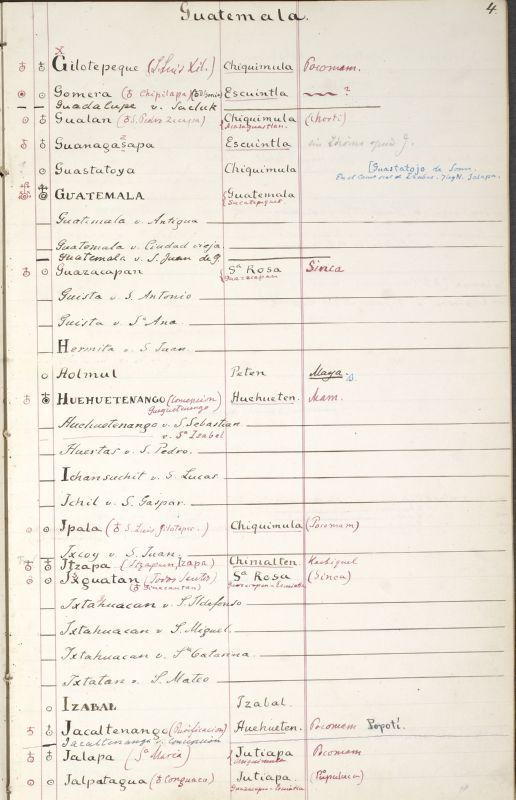 Guatemala. 4.
Gilotepeque (S. Luis Xil.) Chiquimula Pocomam.
Gomera (Chipilapa) Escuintla ?
Guadalupe v. Sacluk
Gualan (S. Pedro Zacapa) Chiquimula (Chorti)
Acasaguastlan.
Guanagasapa Escuintla ein Idiom apud J.
Guastatoya Chiquimula [Guastatojo de Sonn.
Izabal. Jalapa.
GUATEMALA Guatemala
Sacatepequez
Guatemala v. Antigua
Guatemala v. Ciudad vieja
Guatemala v. S. Juan de G.
Guazacapan Sª Rosa Sinca
Guazacapan
Guista v. S. Antonio
Guista v. Sª Ana.
Hermita v. S. Juan.
Holmul Peten Maya.
HUEHUETENANGO (Concepcion Huehueten. Mam.
Guguetenango)
Huehuetenango v. S. Sebastian
v. Sª Izabel
Huertas v. S. Pedro.
Ichansuchit v. S. Lucas
Ichil v. S. Gaspar.
Ipala (S. Luis Jilotepec.) Chiquimula (Pocomam)
Ixcoy v. S. Juan.
Itzapa (Itzapun, Izapa) Chimalten. Kachiquel
Ixguatan (Todos Santos) Sª Rosa (Sinca)
(Sinacantan) Guazacapan-Escuintla
Ixtahuacan v. S. Ildefonso
Ixtahuacan v. S. Miguel.
Ixtahuacan v. Sª Catarina
Ixtatan v. S. Mateo
IZABAL Izabal.
Jacaltenango (Purificacion) Huehueten. Pocomam Popotí.
Jacaltenango v. Concepcion
Jalapa (Sª Maria) Jutiapa Pocomam
Chiquimula
Jalpatagua (Conguaco) Jutiapa. (Pupuluca)
Guazacapan-Escuintla